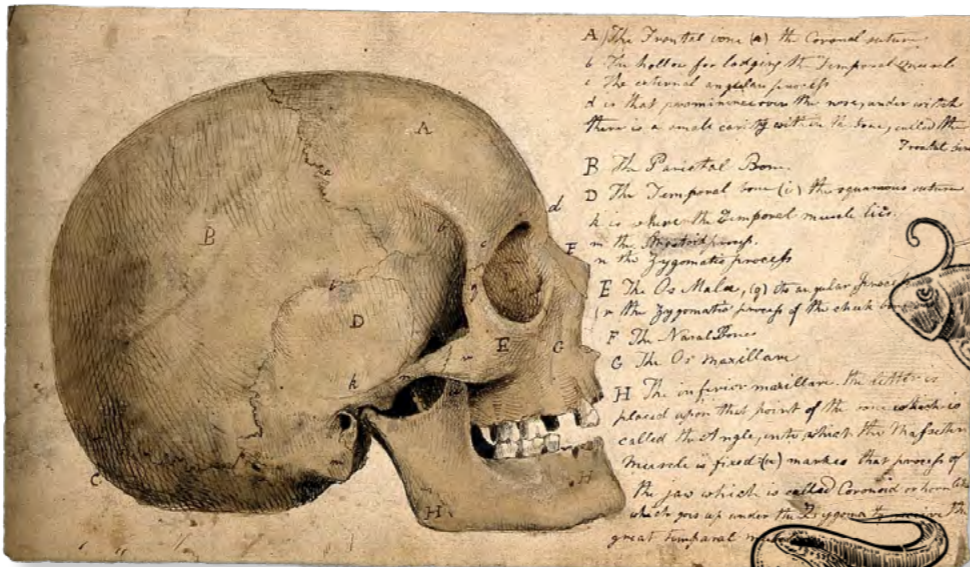 A) The Frontal bone (a) the Coronal suture
b The hollow for lodging the Temporal muscle
c The external angular process
d is that prominence over the nose, under which
there is a small cavity within the bone, called the
Frontal
B The Parietal Bone.
D The Temporal bone (i) the squamous suture
k is where the Temporal muscle lies.
m the Mastoid process.
n the Zygomatic process
E The Os Malae, (q) its angular
the Zygomatic process of the cheek
F The Nasal Bones
G The Os maxillare
H The inferior maxillare. the letter is
placed upon that point of the bone which is
called the Angle, into which the Masseter
Muscle is fixed (n) marks that process of
the jaw which is called Coronoid or horn
which goes up under the Zygoma to receive the
great temporal
A
B
C
D
E
F
G
H
H
b
c
d
k